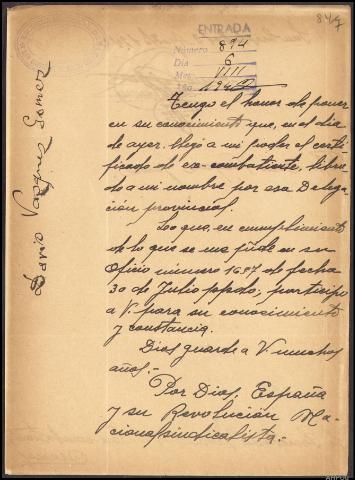 847
ENTRADA
Número 894
Día 6
Mes VIII
Dario Vazquez Gomez
Tengo el honor de poner
en su conocimiento que, en el día
de ayer, llegó a mi poder el certi-
ficado de ex-combatiente, libra-
do a mi nombre por esa Delega-
ción provincial.
Lo que, en cumplimiento
de lo que se me pide en su
Oficio número 1697 de fecha
30 de Julio ppdo; participo
a V. para su conocimiento
y constancia.
Dios guarde a V muchos
años.-
Por Dios, España
y su Revolución Na-
cionalsindicalista.-